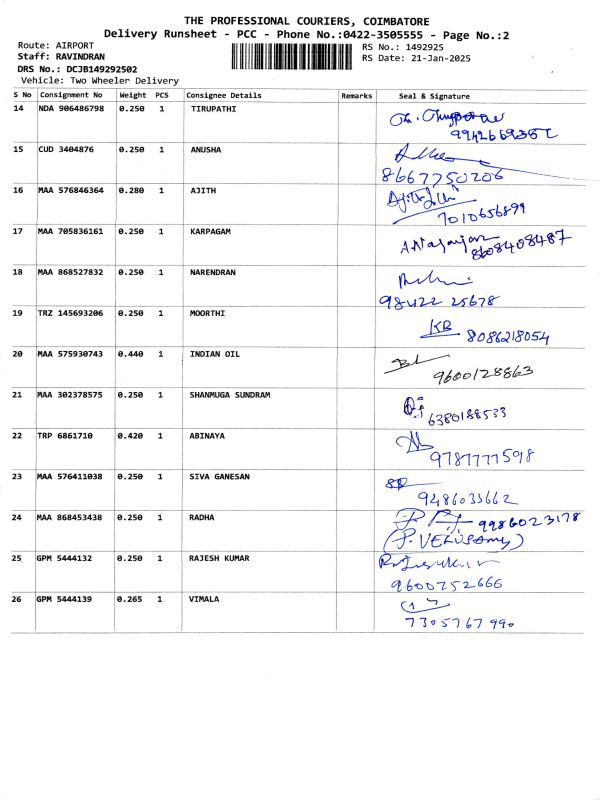 THE PROFESSIONAL COURIERS, COIMBATORE
Delivery Runsheet - PCC - Phone No.:0422-3505555 - Page No.:2
Route: AIRPORT RS No.: 1492925
Staff: RAVINDRAN RS Date: 21-Jan-2025
DRS No.: DCJB149292502
Vehicle: Two Wheeler Delivery
S No Consignment No Weight PCS Consignee Details Remarks Seal & Signature
14 NDA 906486798 0.250 1 TIRUPATHI
15 CUD 3404876 0.250 1 ANUSHA
8667750206
16 MAA 576846364 0.280 1 AJITH
7010656899
17 MAA 705836161 0.250 1 KARPAGAM
8608408487
18 MAA 868527832 0.250 1 NARENDRAN
98422 25678
19 TRZ 145693206 0.250 1 MOORTHI
KB 8086218054
20 MAA 575930743 0.440 1 INDIAN OIL
9600128863
21 MAA 302378575 0.250 1 SHANMUGA SUNDRAM
6380188533
22 TRP 6861710 0.420 1 ABINAYA
9787777598
23 MAA 576411038 0.250 1 SIVA GANESAN
9486033662
24 MAA 868453438 0.250 1 RADHA 9986023178
(P. VELUSAMY)
25 GPM 5444132 0.250 1 RAJESH KUMAR
9600752666
26 GPM 5444139 0.265 1 VIMALA
7305767990